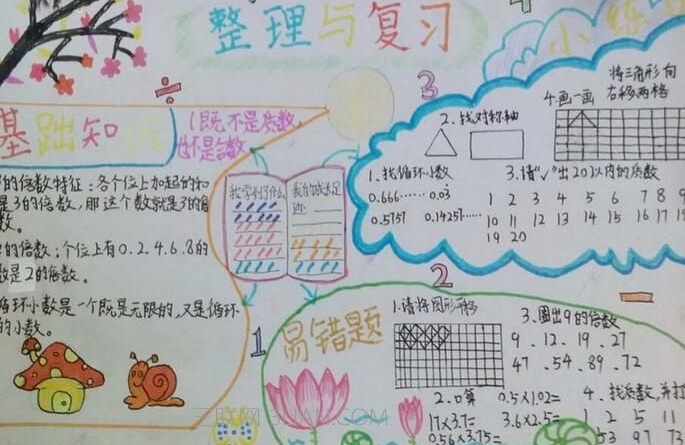 整理与复习
基础知识
1既不是质数,
也不是合数
的倍数特征:各个位上加起的和
是3的倍数,那这个数就是3的倍
数。
的倍数:个位上有0.2.4.6.8的
数是2的倍数。
循环小数是一个既是无限的,又是循环
的小数。
我学到了什么
1
2
3
小练
1.找循环小数
0.666…… 0.03
0.5757 0.14257……
2、找对称轴
3.请“√”出20以内的质数
1 2 3 4 5 6 7 8 9
10 11 12 13 14 15 16 17 18
19 20
4.画一画
将三角形向
右移两格
易错题
1.请将图形平移
2.口算
0.5×1.02=
17×3.7=
3.6×2.5=
0.56×3.75=
3.圈出9的倍数
9.12.19.27
47.54.89.72
4、找质数,并打
1 2 5 11
53 97 72
三联网 3LIAN.COM